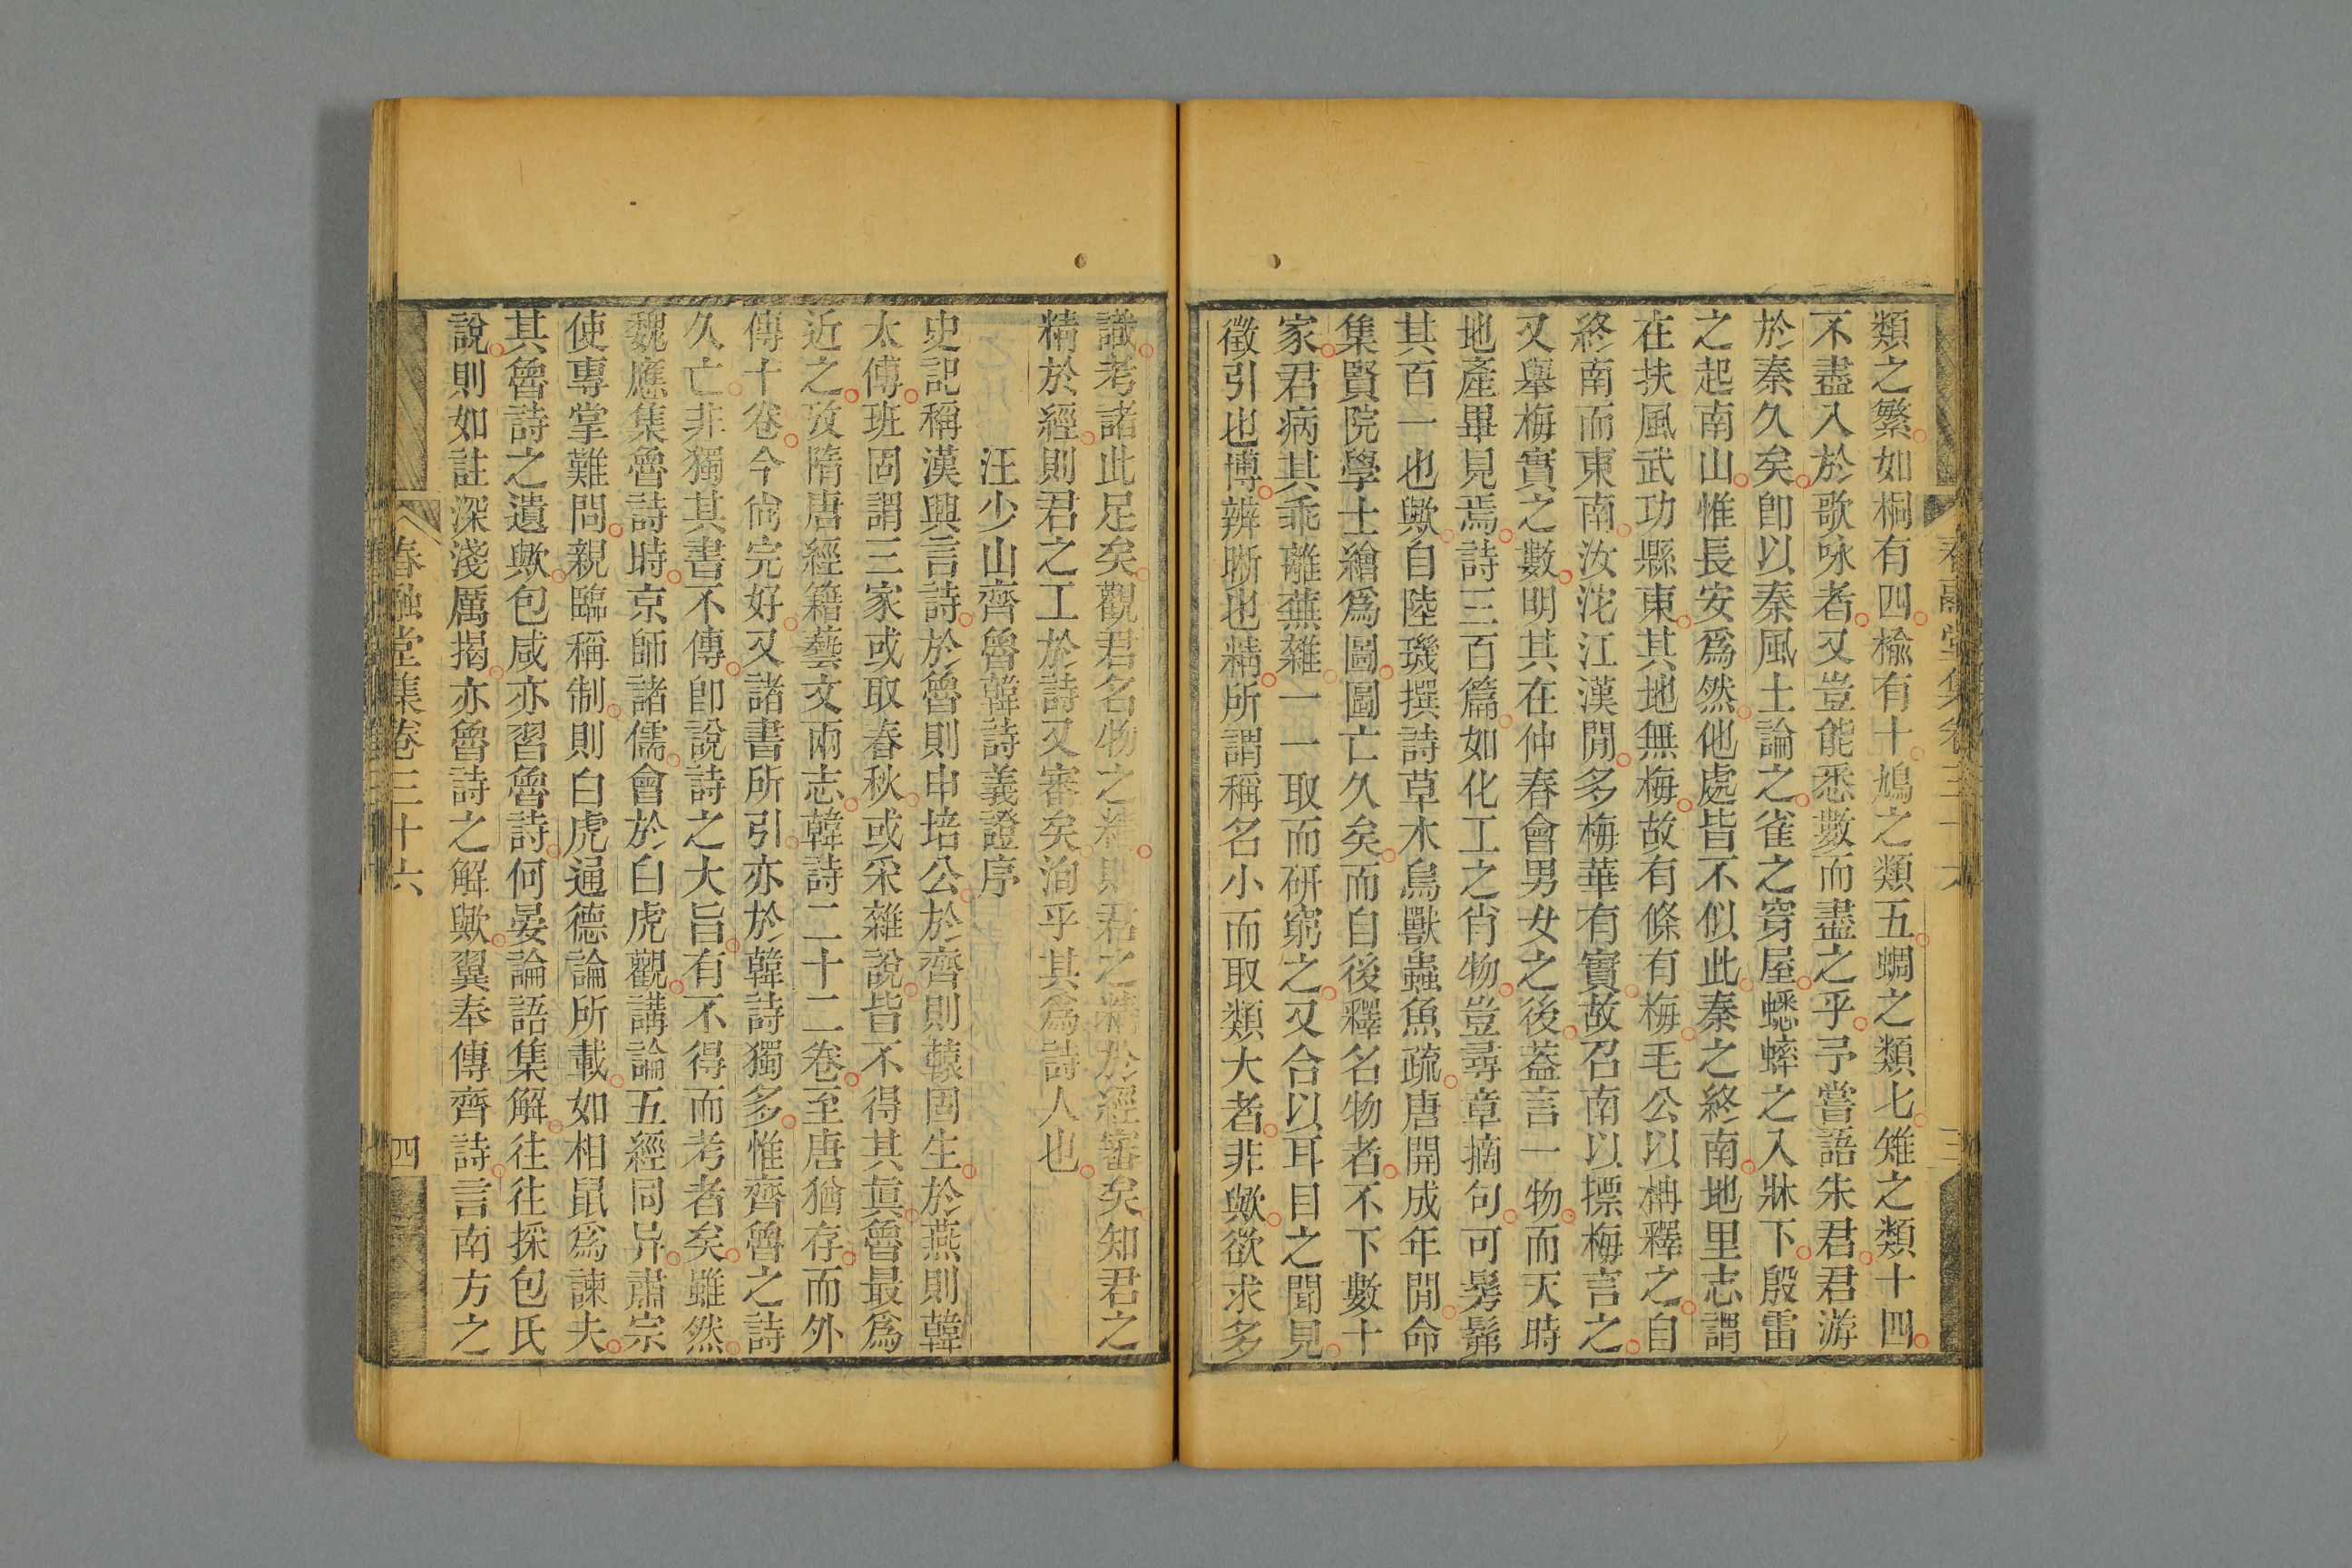 類之繁如桐有四榆有十鳩之類五蜩之類七雉之類十四
不盡入於歌咏者又豈能悉數而盡之乎予嘗語朱君君游
於秦久矣卽以秦風土論之雀之穿屋蟋蟀之入牀下殷雷
之起南山惟長安爲然他處皆不似此秦之終南地里志謂
在扶風武功縣東其地無梅故有條有梅毛公以柟釋之自
終南而東南汝沱江漢閒多梅華有實故召南以摽梅言之
又舉梅實之數明其在仲春會男女之後葢言一物而天時
地產畢見焉詩三百篇如化工之肖物豈尋章摘句可髣髴
其百一也歟自陸璣撰詩草木鳥獸蟲魚疏唐開成年閒命
集賢院學士繪爲圖圖亡久矣而自後釋名物者不下數十
家君病其乖離蕪雜一一取而研窮之又合以耳目之聞見
徵引也博辨晰也精所謂稱名小而取類大者非歟欲求多
識考諸此足矣觀君名物之精則君之精於經審矣知君之
精於經則君之工於詩又審矣洵乎其爲詩人也
汪少山齊魯韓詩義證序
史記稱漢興言詩於魯則申培公於齊則轅固生於燕則韓
太傅班固謂三家或取春秋或采雜說皆不得其眞魯最爲
近之攷隋唐經籍藝文兩志韓詩二十二卷至唐猶存而外
傳十卷今尙完好又諸書所引亦於韓詩獨多惟齊魯之詩
久亡非獨其書不傳卽說詩之大旨有不得而考者矣雖然
魏應集魯詩時京師諸儒會於白虎觀講論五經同异肅宗
使專掌難問親臨稱制則白虎通德論所載如相鼠爲諫夫
其魯詩之遺歟包咸亦習魯詩何晏論語集解往往採包氏
說則如註深淺厲揭亦魯詩之解歟翼奉傳齊詩言南方之
春融堂集卷三十六
四